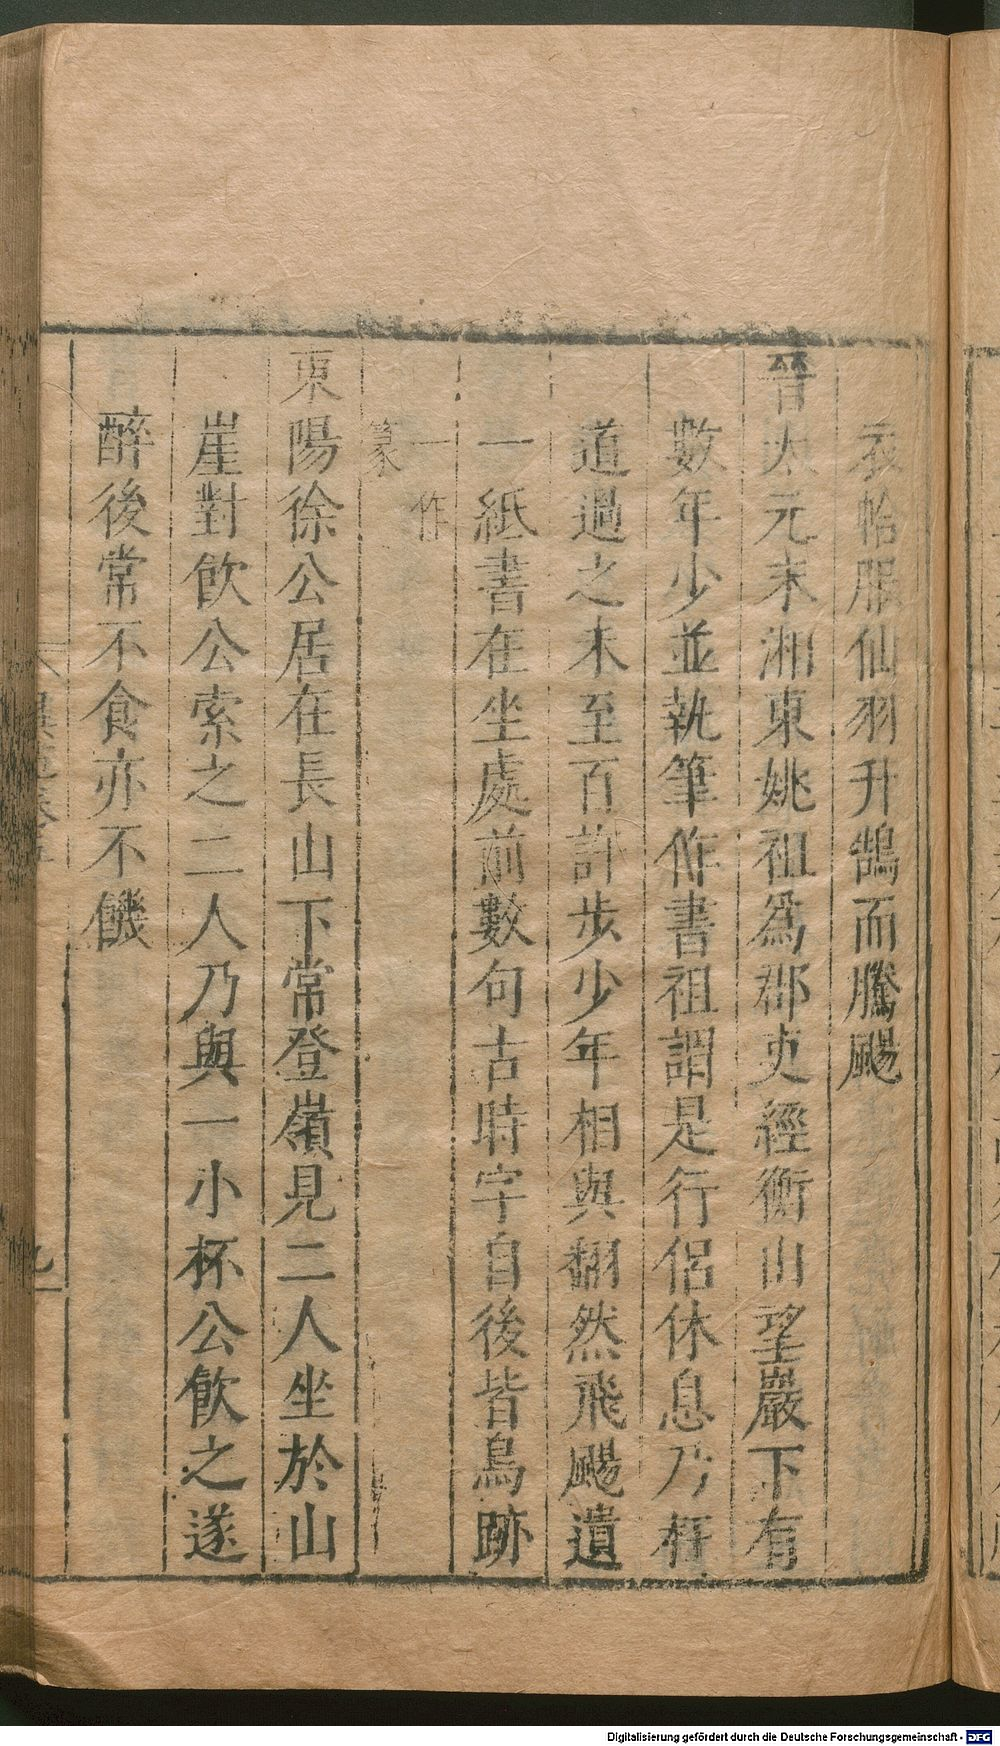 衣帢服仙羽升鵠而騰颺
晉太元末湘東姚祖爲郡吏經衡山望巖下有
數年少並執筆作書祖謂是行侶休息乃枉
道過之未至百許步少年相與翻然飛颺遺
一紙書在坐處前數句古時字自後皆鳥跡
一作
篆
東陽徐公居在長山下常登嶺見二人坐於山
崖對飲公索之二人乃與一小杯公飲之遂
醉後常不食亦不饑
異苑卷五
九
Digitalisierung gefördert durch die Deutsche Forschungsgemeinschaft - DFG